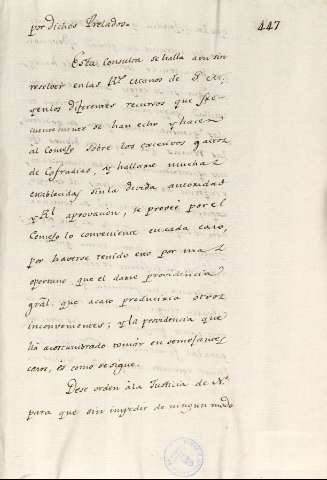 por dichos Prelados.
447
Esta Consulta se halla aun sin
resolver en las Rs. manos de S. M.
y en los diferentes recursos que fre-
cuentemente se han echo y hacen
al Consejo sobre los excesivos gastos
de Cofradias, y hallarse muchas
establecidas sin la devida autoridad
y Rl. aprovacion, se provee por el
Consejo lo conveniente en cada caso,
por haverse tenido esto por mas
oportuno que el darse providencia
gral. que acaso produciria otros
inconvenientes; y la providencia que
ha acostumbrado tomar en semejantes
casos, es como se sigue.
Dese orden a la Justicia de N.
para que sin impedir de ningun modo